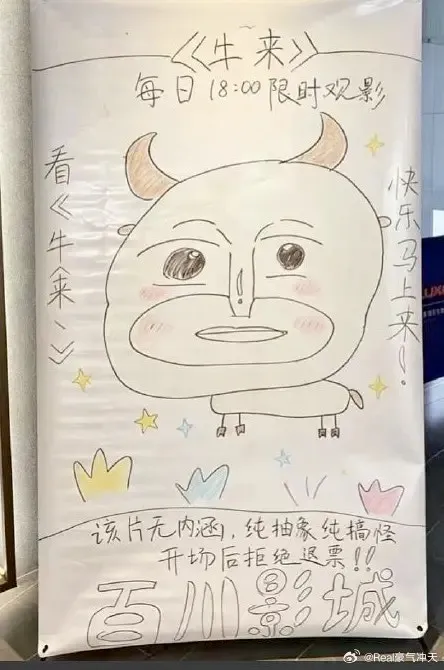 《牛来》
每日18:00限时观影
看《牛来、》
快乐马上来!
该片无内涵,纯抽象纯搞怪
开场后拒绝退票!!
百川影城
@Real豪气冲天